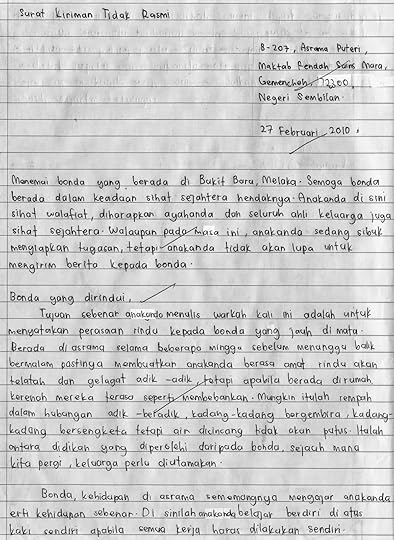 Surat Kiriman Tidak Rasmi
B-207, Asrama Puteri,
Maktab Rendah Sains Mara,
Gemencheh, 72300,
Negeri Sembilan.
27 Februari 2010.
Menemui bonda yang berada di Bukit Baru, Melaka. Semoga bonda
berada dalam keadaan sihat sejahtera hendaknya. Anakanda di sini
sihat walafiat, diharapkan ayahanda dan seluruh ahli keluarga juga
sihat sejahtera. Walaupun pada masa ini, anakanda sedang sibuk
menyiapkan tugasan, tetapi anakanda tidak akan lupa untuk
mengirim berita kepada bonda.
Bonda yang dirindui,
Tujuan sebenar anakanda menulis warkah kali ini adalah untuk
menyatakan perasaan rindu kepada bonda yang jauh di mata.
Berada di asrama selama beberapa minggu sebelum menunggu balik
bermalam pastinya membuatkan anakanda berasa amat rindu akan
telatah dan gelagat adik-adik, tetapi apabila berada di rumah
kerenah mereka terasa seperti membebankan. Mungkin itulah rempah
dalam hubungan adik-beradik, kadang-kadang bergembira, kadang-
kadang bersengketa tetapi air dicincang tidak akan putus. Itulah
antara didikan yang diperolehi daripada bonda, sejauh mana
kita pergi, keluarga perlu diutamakan.
Bonda, kehidupan di asrama sememangnya mengajar anakanda
erti kehidupan sebenar. Di sinilah anakanda belajar berdiri di atas
kaki sendiri apabila semua kerja harus dilakukan sendiri.